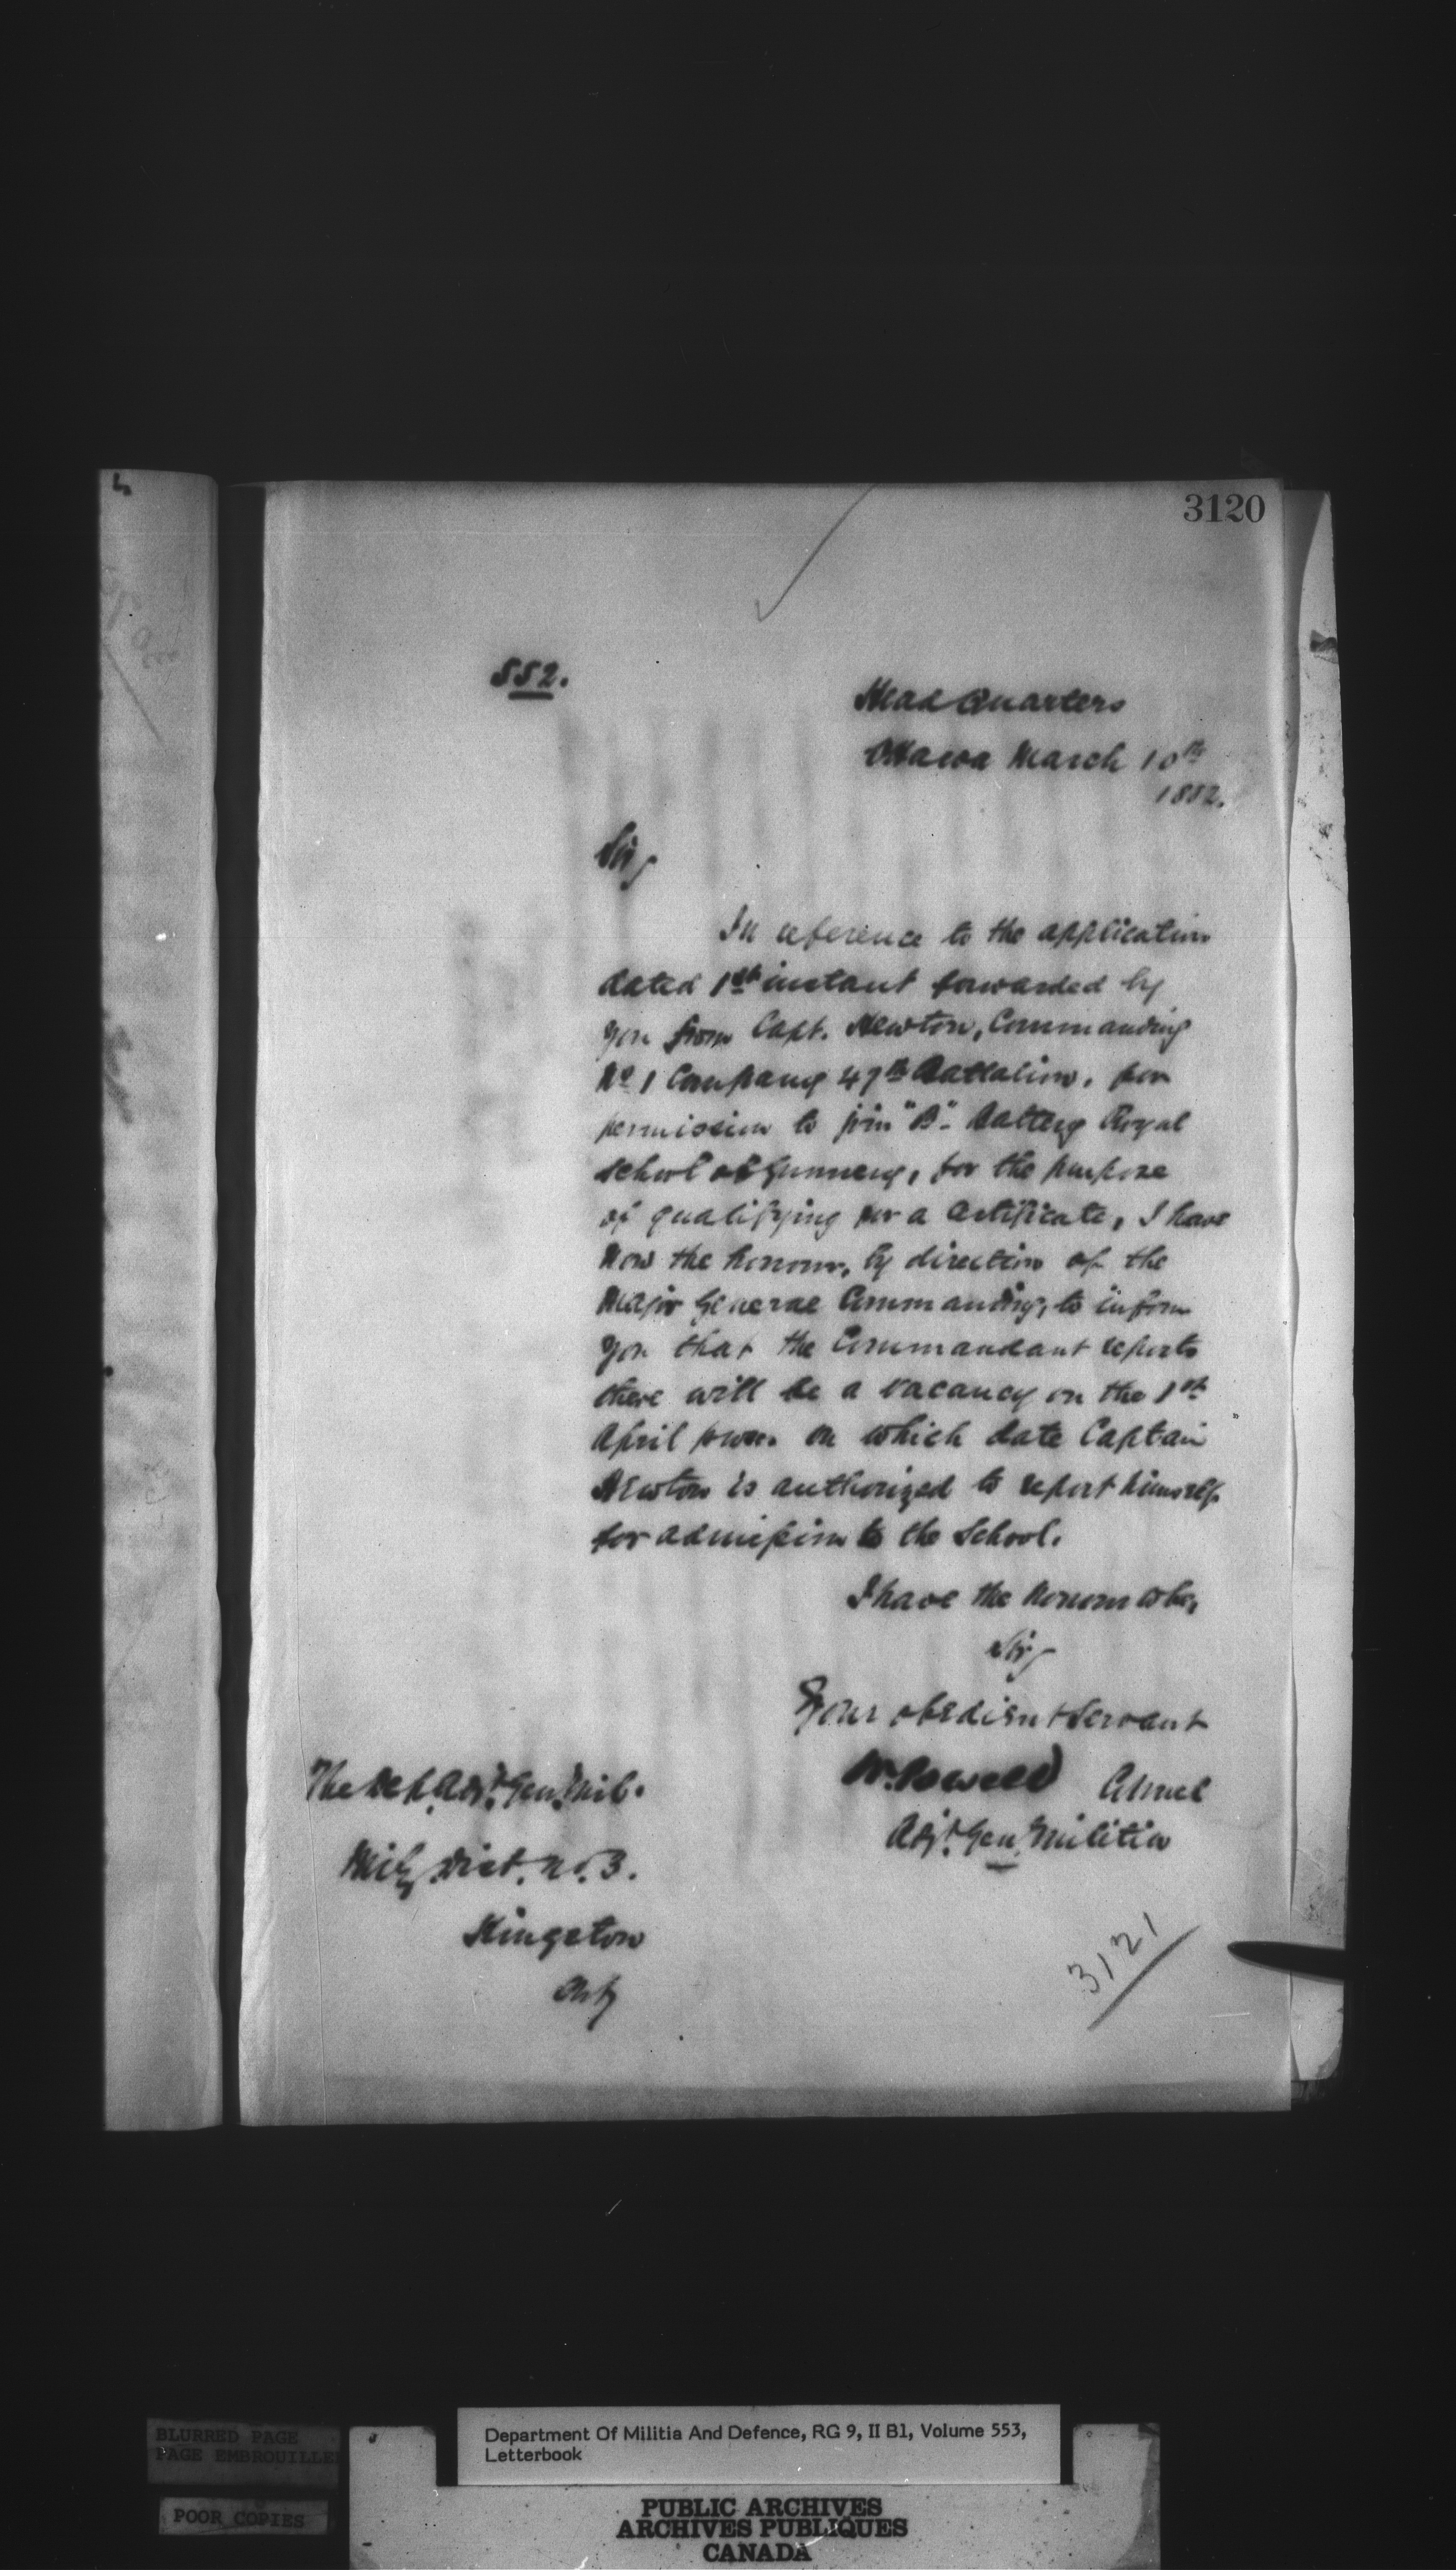 3120
552.
Head Quarters
Ottawa March 10th
1882.
Sir,
In reference to the application
dated 1st instant forwarded by
you from Capt. Newton, Commanding
No 1 Company 47th Battalion, for
permission to join "B" Battery Royal
School of Gunnery, for the purpose
of qualifying for a Certificate, I have
now the honour, by direction of the
Major General Commanding, to inform
you that the Commandant reports
there will be a vacancy on the 1st
April prox. on which date Captain
Newton is authorized to report himself
for admission to the School.
I have the honour to be,
Sir,
Your obedient Servant
W. Powell Colonel
Adjt. Gen. Militia
The Dep. Adjt. Gen. Mil.
Mily. Dist. No. 3.
Kingston
Ont.
3121
BLURRED PAGE
PAGE EMBROUILLEE
POOR COPIES
Department Of Militia And Defence, RG 9, II B1, Volume 553,
Letterbook
PUBLIC ARCHIVES
ARCHIVES PUBLIQUES
CANADA